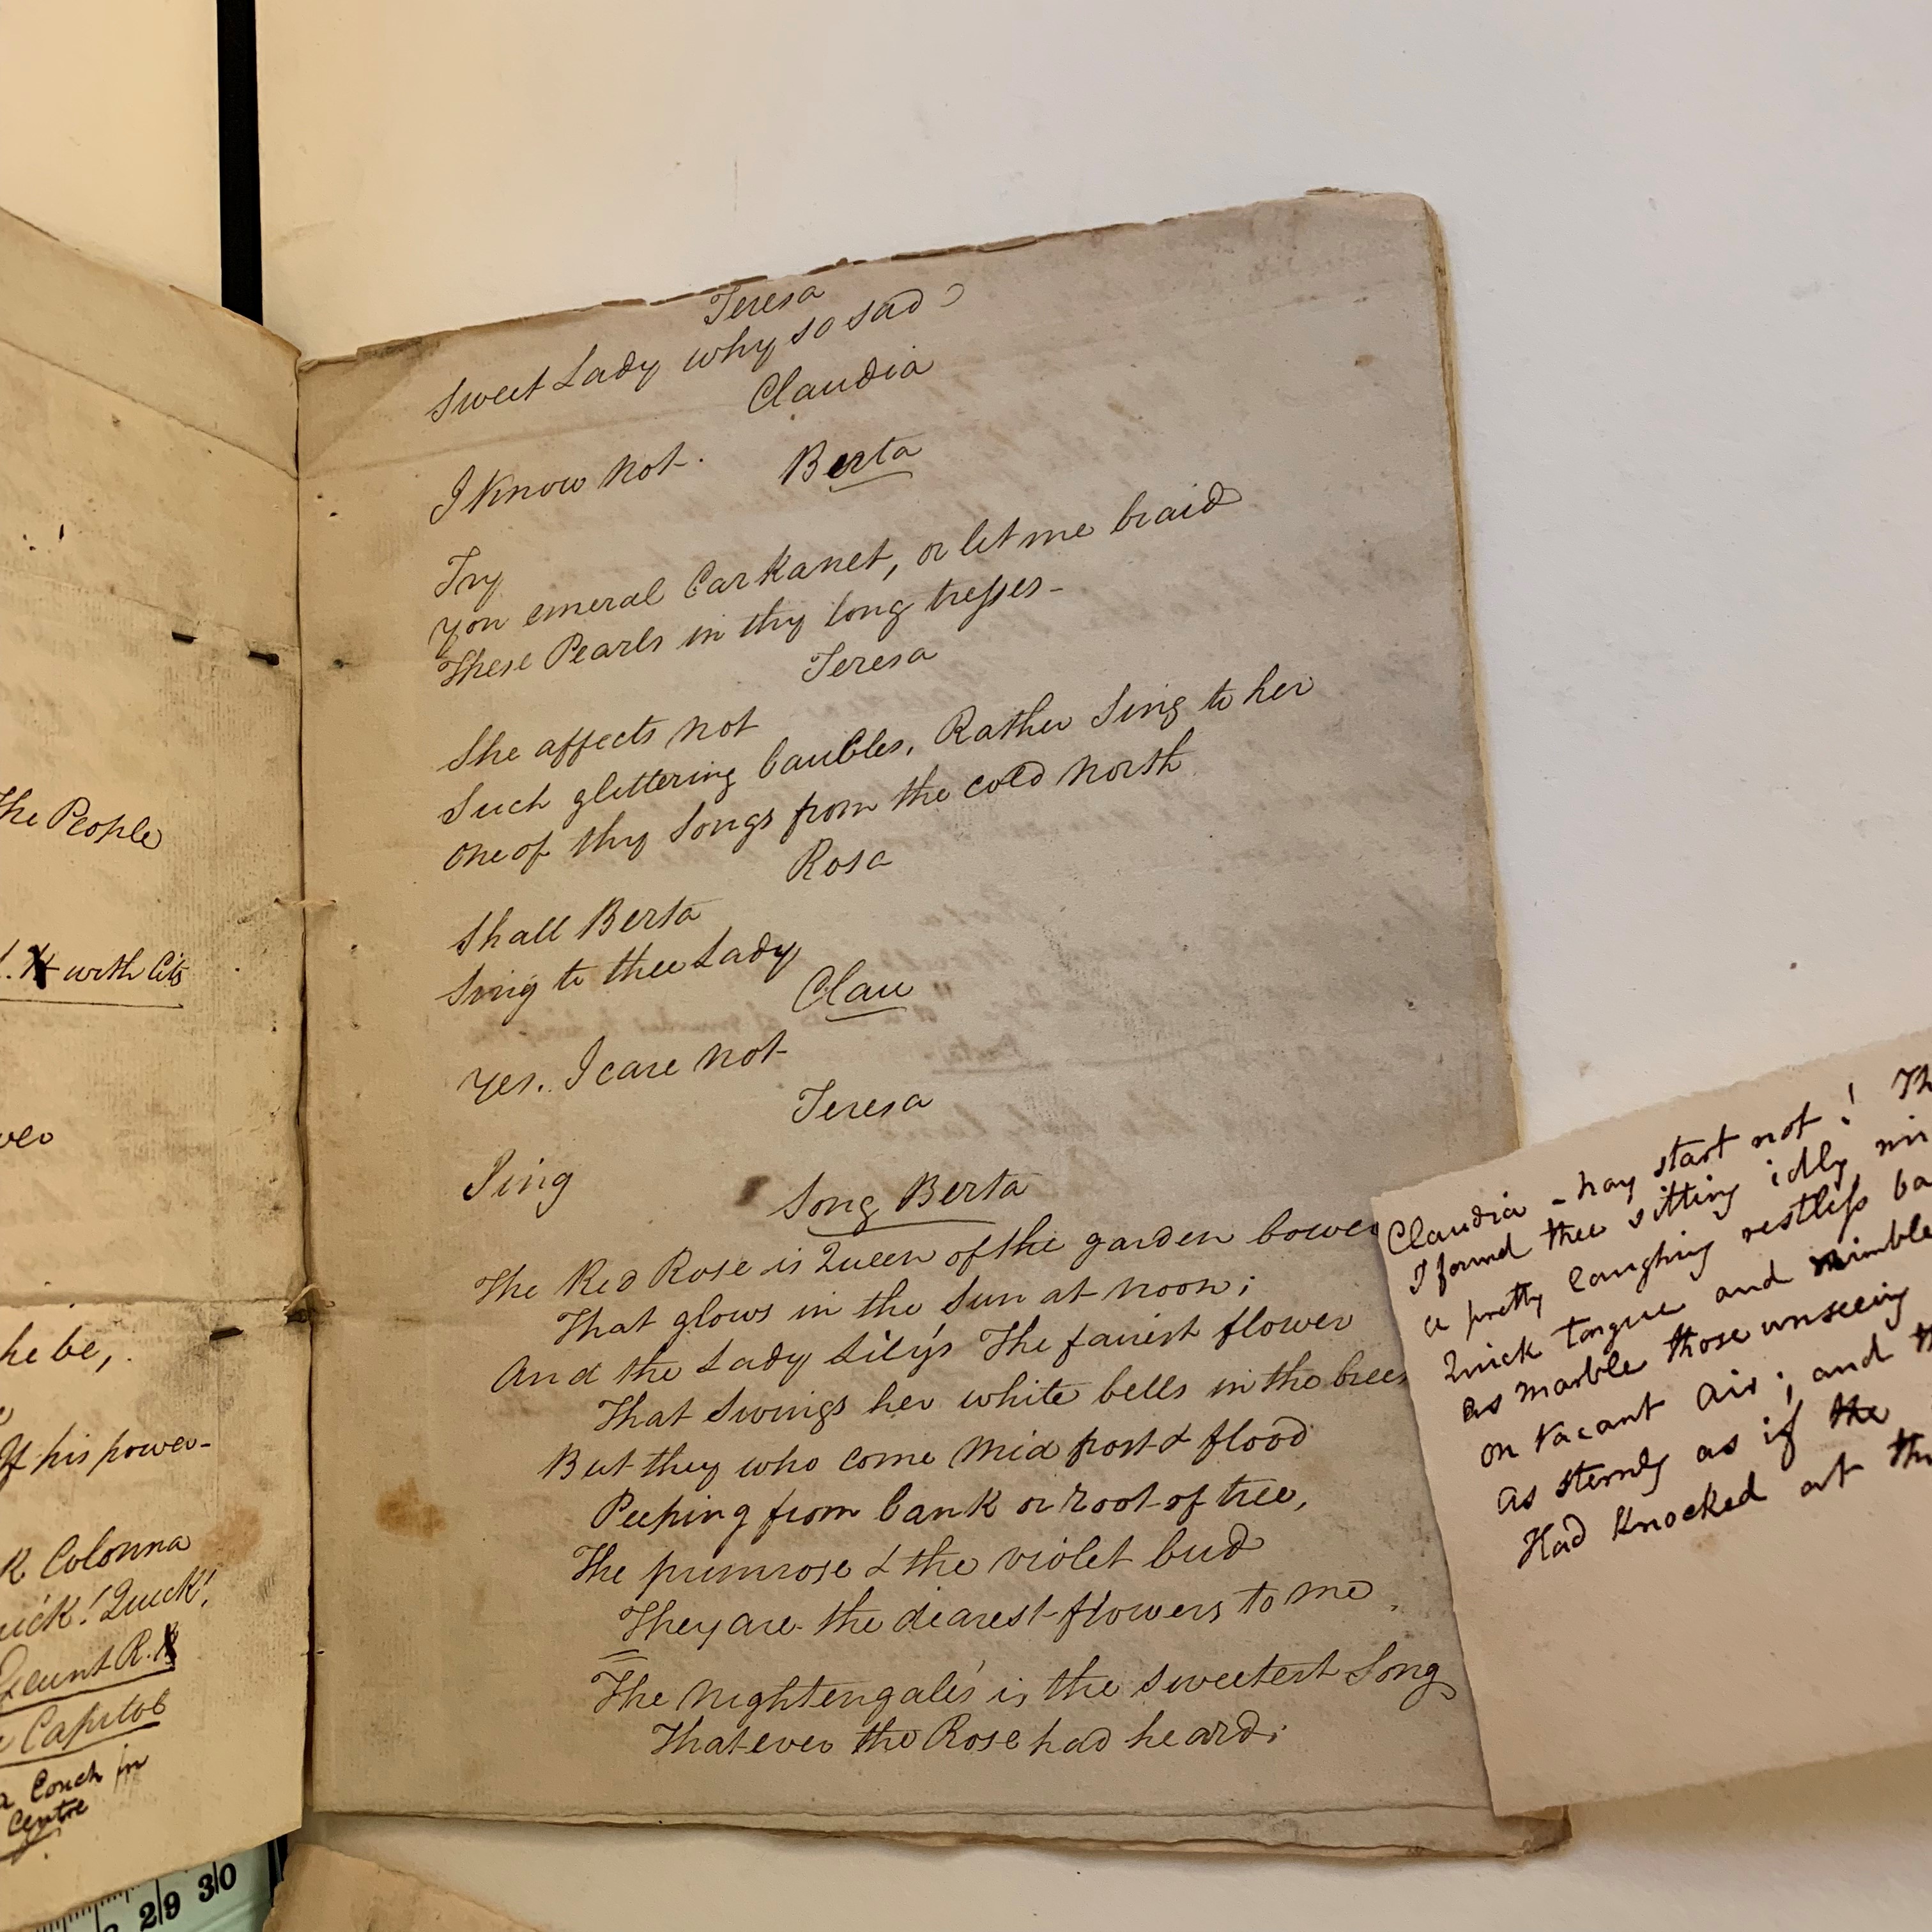 The People
with Cits
he be,
If his power-
K Colonna
Quick!
Capitol
Couch in
Centre
29 30
Teresa
Sweet Lady why so sad?
Claudia
I Know not.
Berta
Try
yon emeral Carkanet, or let me braid
These Pearls in thy long tresses-
Teresa
She affects not
Such glittering baubles, Rather Sing to her
one of thy Songs from the cold North
Rosa
Shall Berta
Sing to thee Lady
Clau
Yes. I care not-
Teresa
Sing
Song Berta
The Red Rose is Queen of the garden bower
That glows in the Sun at noon;
And the Lady Lily's The fairest flower
That Swings her white bells in the breez
But they who come mid frost & flood
Peeping from bank or root of tree,
The primrose & the violet bud
They are the dearest flowers to me.
The Nightengale's is the sweetest Song
That ever the Rose had heard;
Claudia - nay start not! Th
I found thee sitting idly
a pretty laughing restless ba
Quick tongue and nimble
as marble those unseeing
on vacant air; and th
as sternly as if the
Had knocked at th